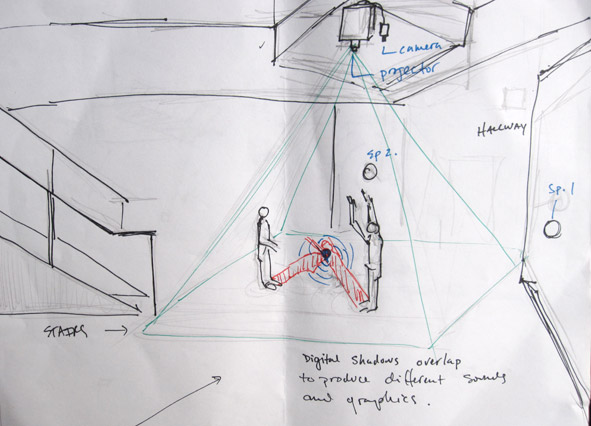 camera
projector
HALLWAY
Sp 2.
Sp. 1
STAIRS
Digital shadows overlap
to produce different sounds
and graphics.